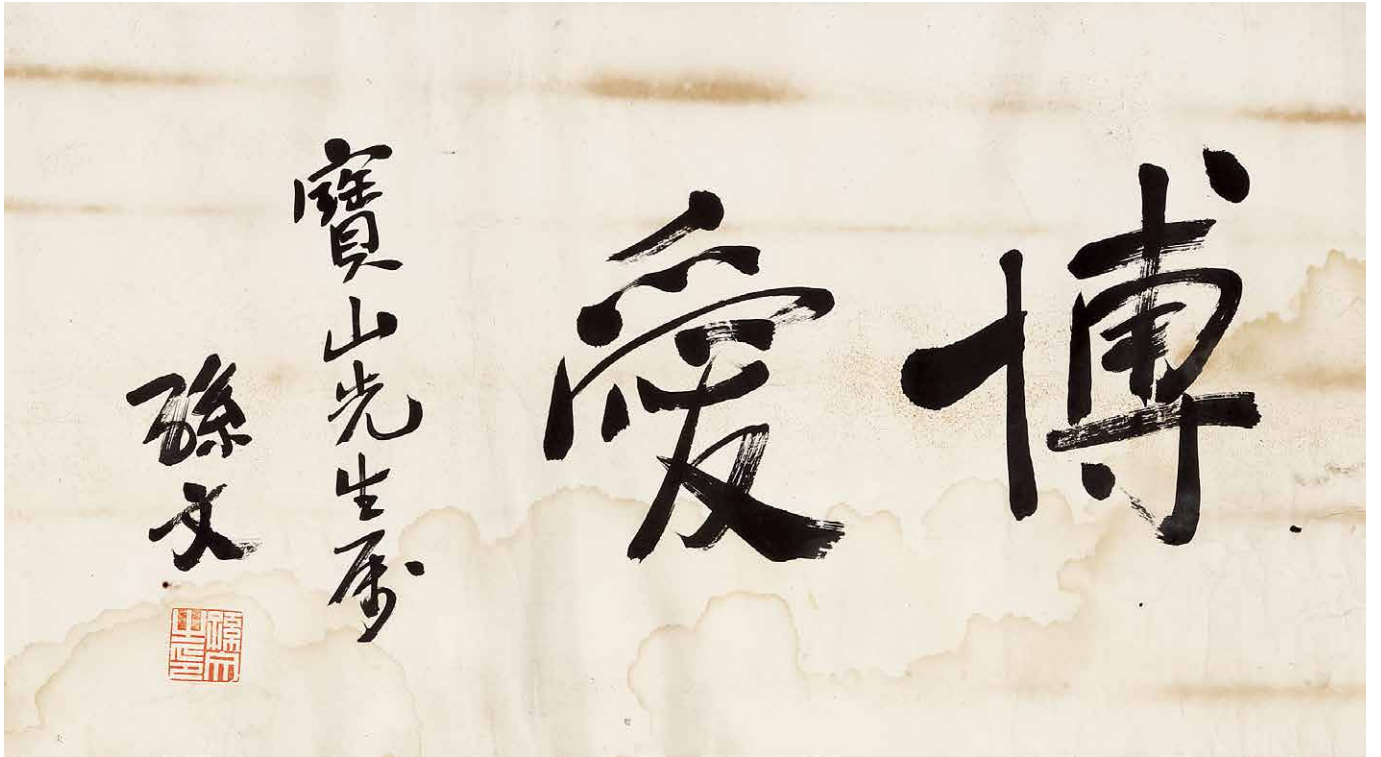 博愛
寶山先生属
孫文
孫文之印